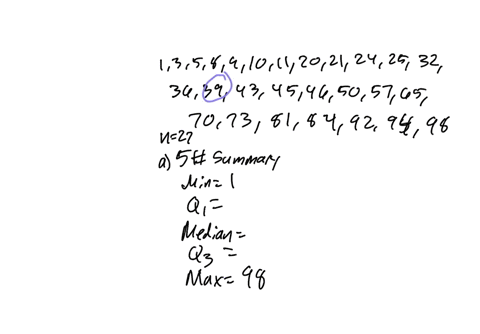 1, 3, 5, 8, 9, 10, 11, 20, 21, 24, 25, 32,
36, 39, 43, 45, 46, 50, 57, 65,
70, 73, 81, 84, 92, 94, 98
n=27
a) 5# Summary
Min= 1
Q₁=
Median=
Q₃ =
Max= 98